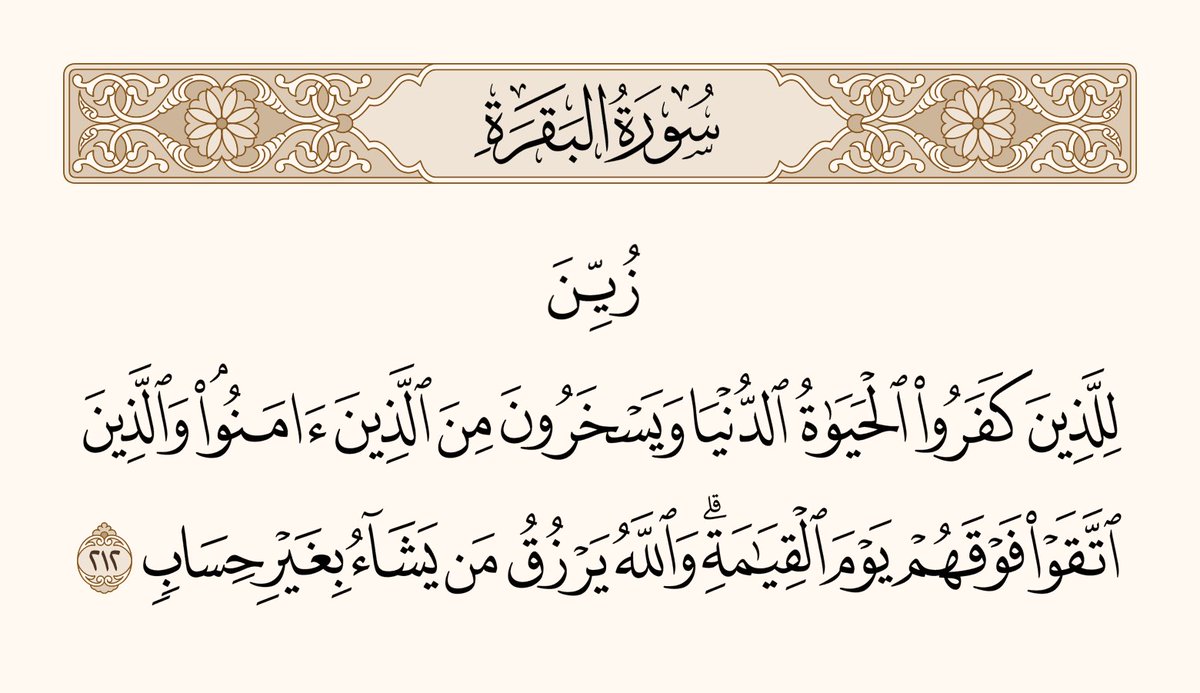 سُورَةُ البَقَرَةِ
زُيِّنَ
لِلَّذِينَ كَفَرُوا۟ ٱلْحَيَوٰةُ ٱلدُّنْيَا وَيَسْخَرُونَ مِنَ ٱلَّذِينَ ءَامَنُوا۟ۘ وَٱلَّذِينَ
ٱتَّقَوْا۟ فَوْقَهُمْ يَوْمَ ٱلْقِيَـٰمَةِۗ وَٱللَّهُ يَرْزُقُ مَن يَشَآءُ بِغَيْرِ حِسَابٍ ٢١٢